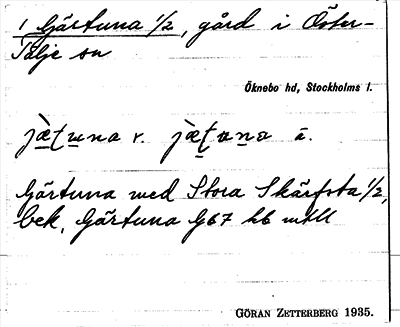 1 Gärtuna 1/2, gård i Öster-
Tälje sn
Öknebo hd, Stockholms l.
jæ̀ʈuna v. jæ̀ʈuna ä.
Gärtuna med Stora Skärfsta 1/2,
bek. Gärtuna G67 hb mtll
GÖRAN ZETTERBERG 1935.